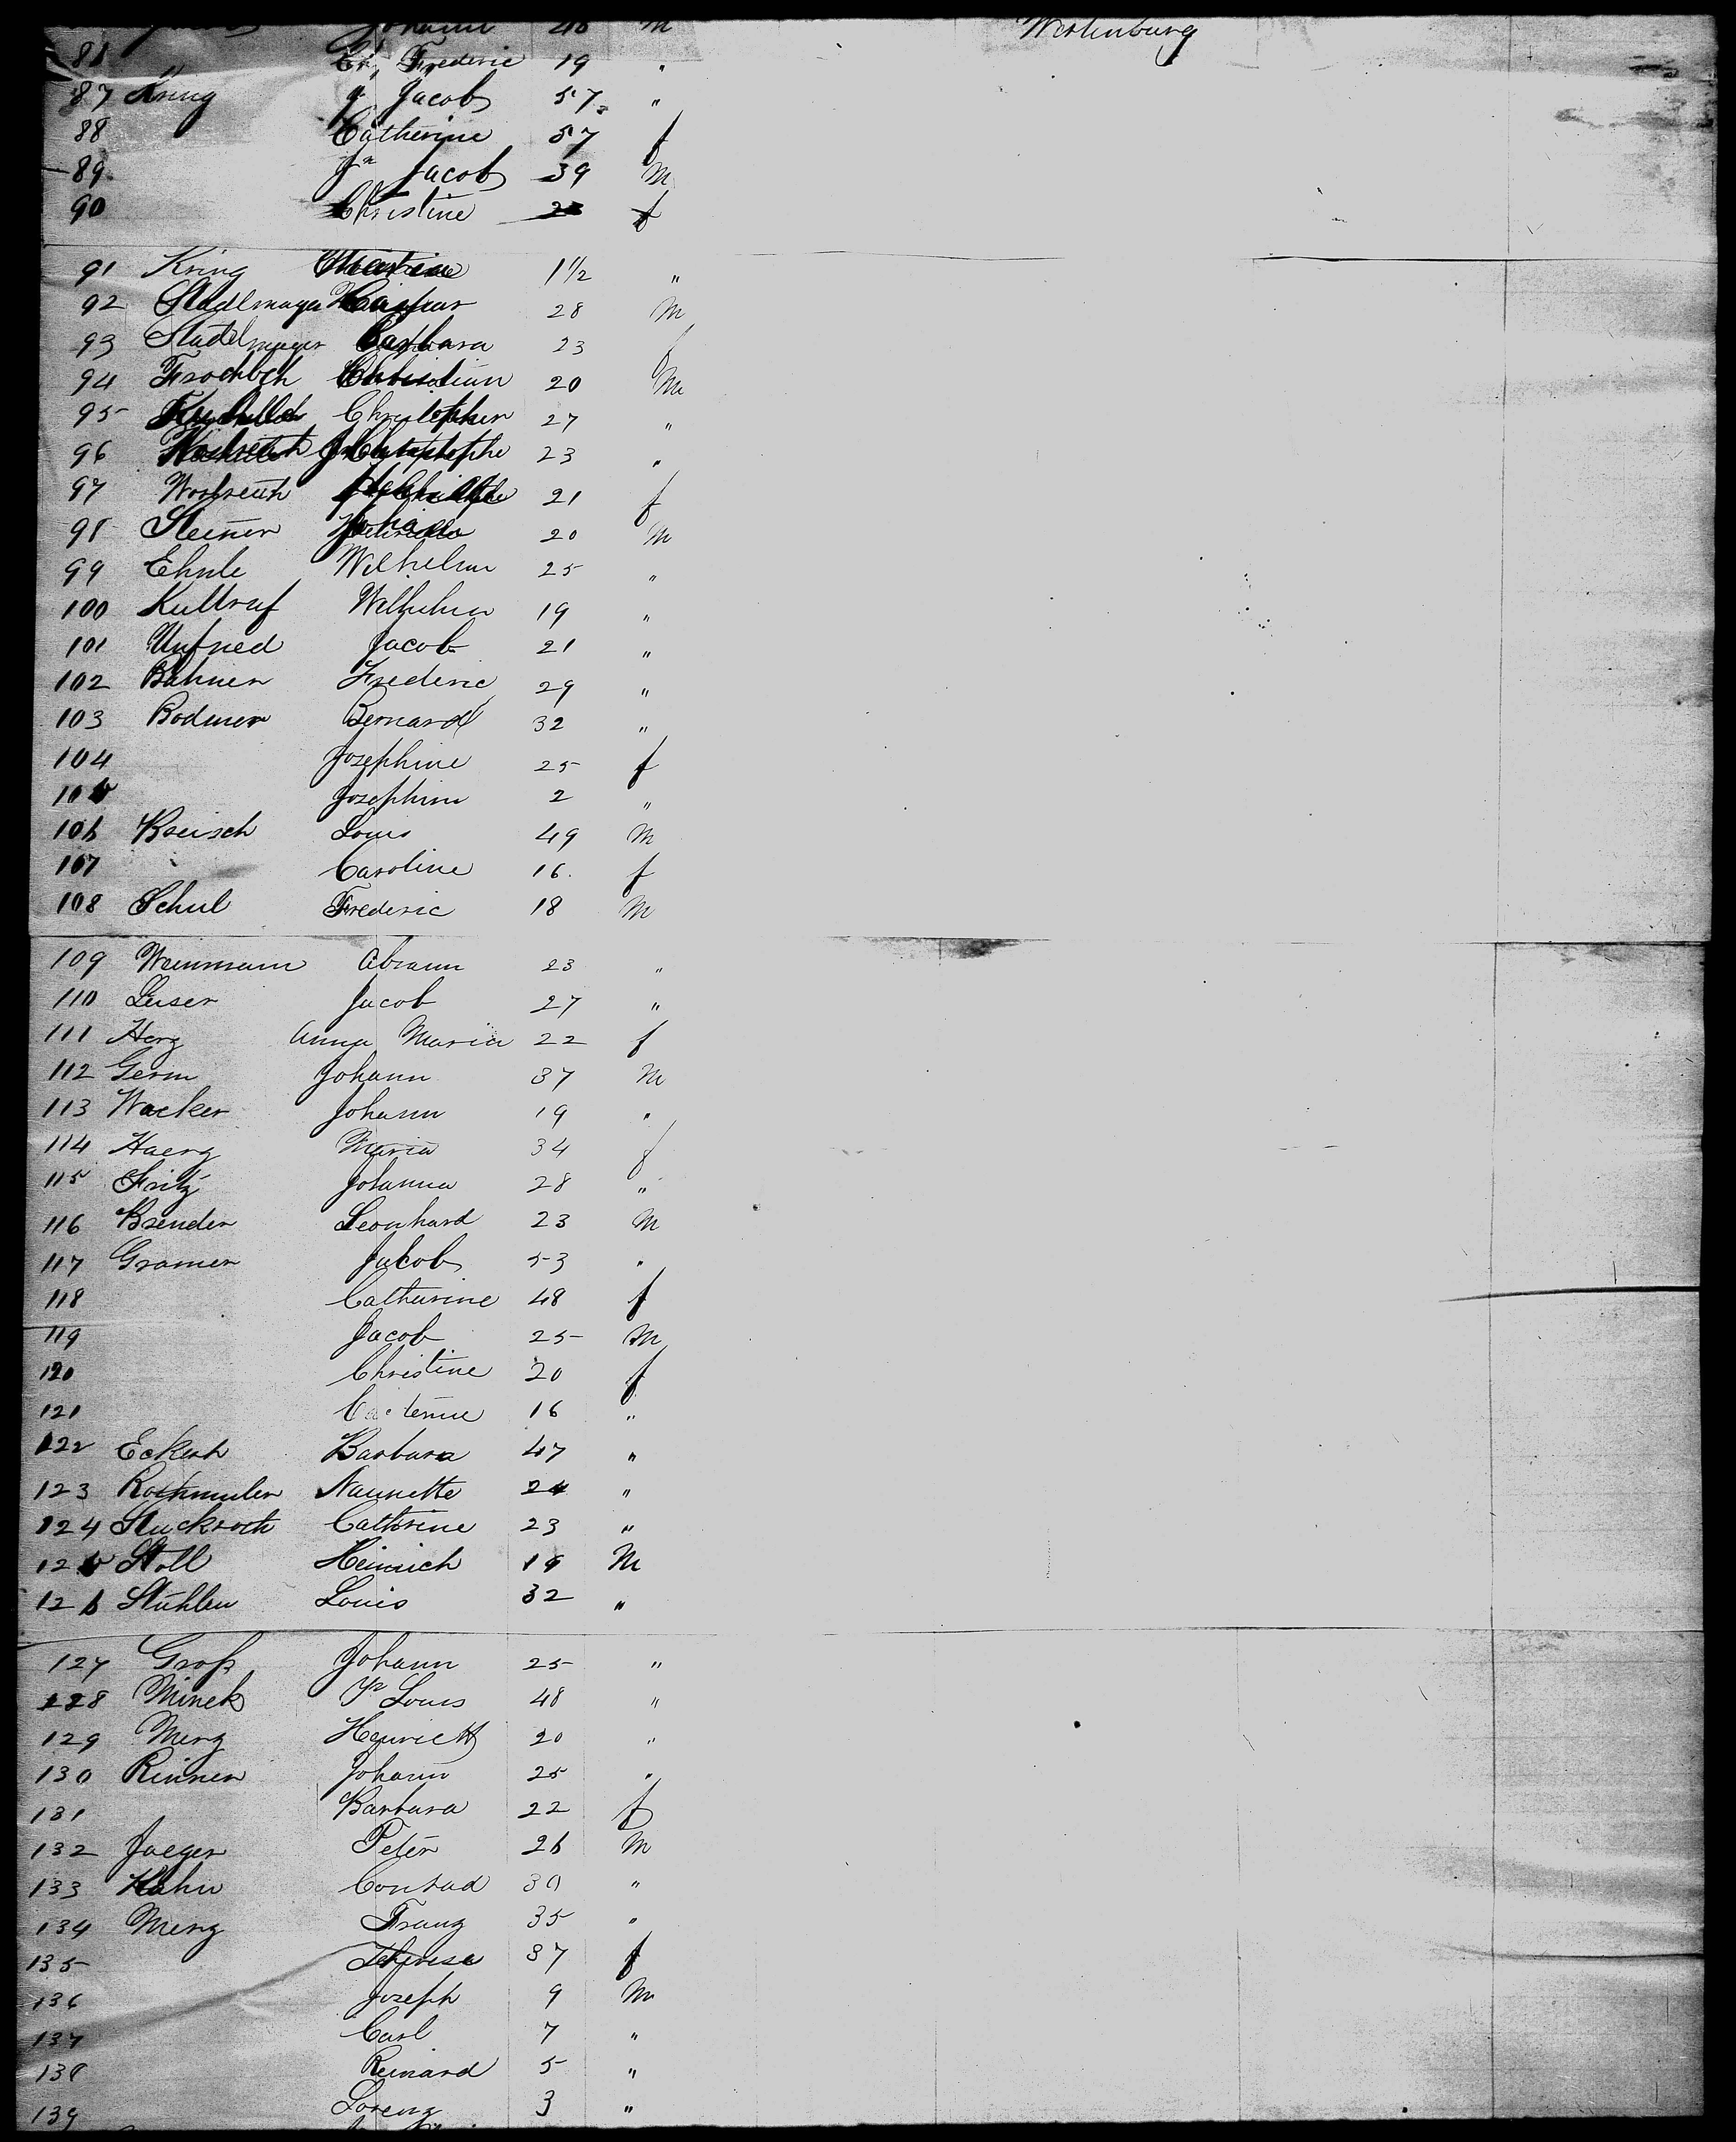 Johann 40 m Wertenburg
88 " Ch. Frederic 19 "
87 Kring Jr Jacob 57 "
88 Catherine 57 f
89 Jn Jacob 39 m
90 Christine f
91 Kring 1 1/2 "
92 Stadlmayer 28 m
93 Stadlmayer Barbara 23 f
94 Christian 20 m
95 Christopher 27 "
96 23 "
97 21 f
98 Steiner 20 m
99 Ehule Wilhelm 25 "
100 Kultraf Wilhelm 19 "
101 Unfried Jacob 21 "
102 Bahner Frederic 29 "
103 Bodmer Bernard 32 "
104 Josephine 25 f
105 Josephine 2 "
106 Kreisch Louis 49 m
107 Caroline 16 f
108 Schul Frederic 18 m
109 Weinmann Abram 23 "
110 Leiser Jacob 27 "
111 Herz Anna Maria 22 f
112 Germ Johann 37 m
113 Wacker Johann 19 "
114 Haerz Maria 34 f
115 Fritz Johanna 28 "
116 Brender Leonhard 23 m
117 Gramer Jacob 53 "
118 Catherine 48 f
119 Jacob 25 m
120 Christine 20 f
121 16 "
122 Eckert Barbara 47 "
123 Rothmuler Nannette 24 "
124 Stuckroth Cathrine 23 "
125 Stoll Heinrich 19 m
126 Stuhlen Louis 32 "
127 Groß Johann 25 "
128 Minck Jn Louis 48 "
129 Merz 20 "
130 Rinner Johann 25 "
131 Barbara 22 f
132 Jaeger Peter 26 m
133 Hahn Conrad 30 "
134 Merz Franz 35 "
135 Therese 37 f
136 Joseph 9 m
137 Carl 7 "
138 Reinard 5 "
139 Lorenz 3 "